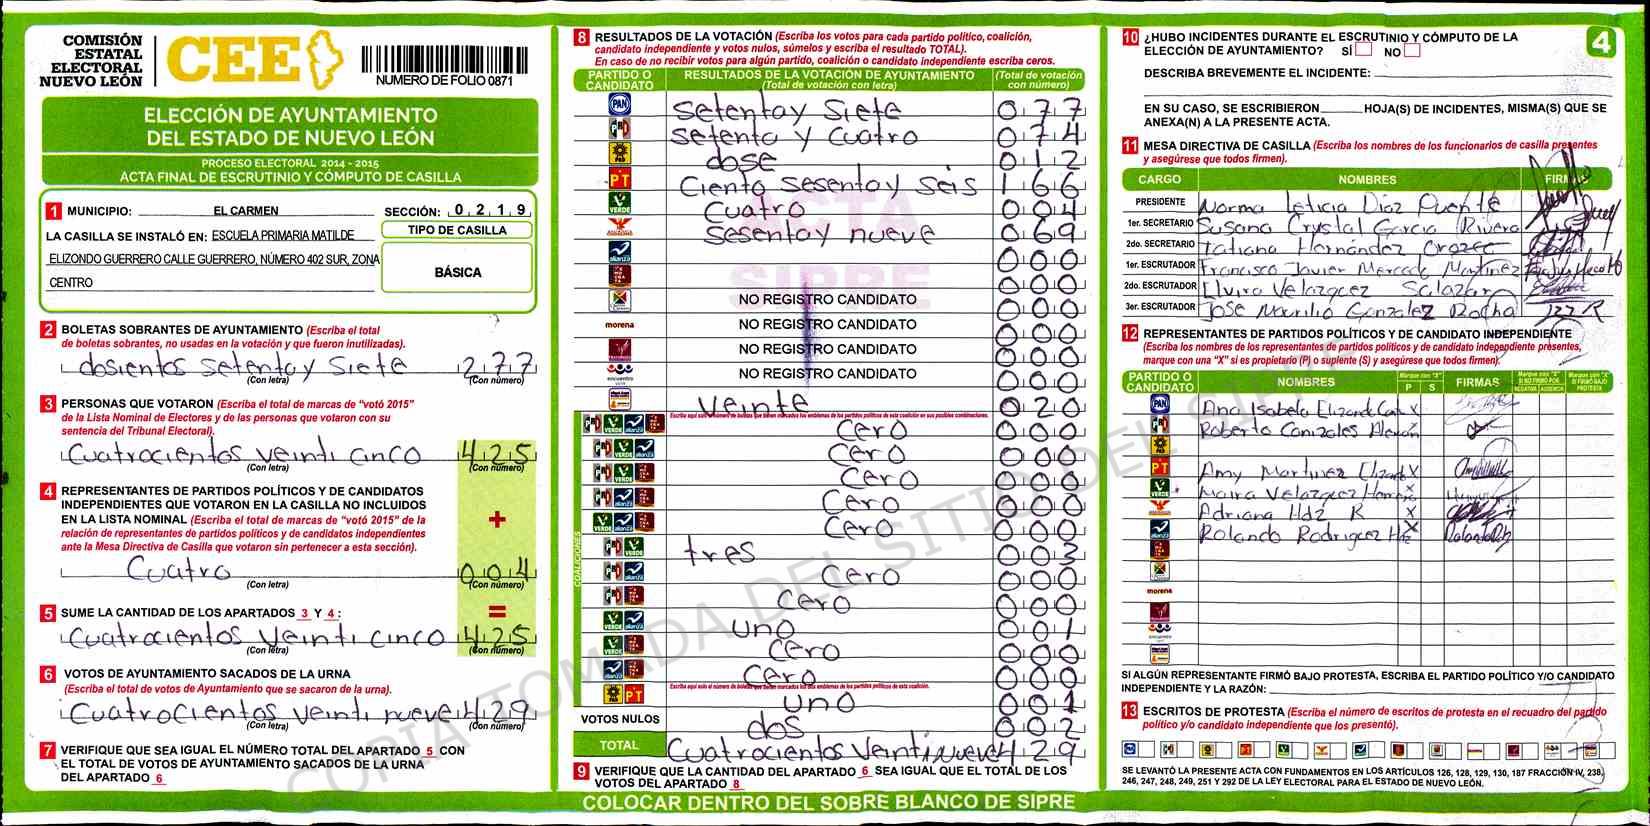 COMISIÓN
ESTATAL
ELECTORAL
NUEVO LEÓN
CEE
NUMERO DE FOLIO 0871
ELECCIÓN DE AYUNTAMIENTO
DEL ESTADO DE NUEVO LEÓN
PROCESO ELECTORAL 2014 - 2015
ACTA FINAL DE ESCRUTINIO Y CÓMPUTO DE CASILLA
1 MUNICIPIO: EL CARMEN SECCIÓN: 0 2 1 9
LA CASILLA SE INSTALÓ EN: ESCUELA PRIMARIA MATILDE
ELIZONDO GUERRERO CALLE GUERRERO, NÚMERO 402 SUR, ZONA
CENTRO
TIPO DE CASILLA
BÁSICA
2 BOLETAS SOBRANTES DE AYUNTAMIENTO (Escriba el total
de boletas sobrantes, no usadas en la votación y que fueron inutilizadas).
dosientos setenta y siete 277
(Con letra) (Con número)
3 PERSONAS QUE VOTARON (Escriba el total de marcas de “votó 2015”
de la Lista Nominal de Electores y de las personas que votaron con su
sentencia del Tribunal Electoral).
Cuatrocientos veinti cinco 425
(Con letra) (Con número)
4 REPRESENTANTES DE PARTIDOS POLÍTICOS Y DE CANDIDATOS
INDEPENDIENTES QUE VOTARON EN LA CASILLA NO INCLUIDOS
EN LA LISTA NOMINAL (Escriba el total de marcas de “votó 2015” de la
relación de representantes de partidos políticos y de candidatos independientes
ante la Mesa Directiva de Casilla que votaron sin pertenecer a esta sección).
+
Cuatro 004
(Con letra) (Con número)
=
5 SUME LA CANTIDAD DE LOS APARTADOS 3 Y 4 :
Cuatrocientos veinti cinco 425
(Con letra) (Con número)
6 VOTOS DE AYUNTAMIENTO SACADOS DE LA URNA
(Escriba el total de votos de Ayuntamiento que se sacaron de la urna).
Cuatrocientos veinti nueve 429
(Con letra) (Con número)
7 VERIFIQUE QUE SEA IGUAL EL NÚMERO TOTAL DEL APARTADO 5 CON
EL TOTAL DE VOTOS DE AYUNTAMIENTO SACADOS DE LA URNA
DEL APARTADO 6
8 RESULTADOS DE LA VOTACIÓN (Escriba los votos para cada partido político, coalición,
candidato independiente y votos nulos, súmelos y escriba el resultado TOTAL).
En caso de no recibir votos para algún partido, coalición o candidato independiente escriba ceros.
PARTIDO O CANDIDATO RESULTADOS DE LA VOTACIÓN DE AYUNTAMIENTO (Total de votación con letra) (Total de votación con número)
PAN Setenta y Siete 077
PRI setenta y cuatro 074
PRD dose 012
PT Ciento sesenta y seis 166
VERDE Cuatro 004
Sesenta y nueve 069
alianza 000
000
NO REGISTRO CANDIDATO 000
morena NO REGISTRO CANDIDATO 000
NO REGISTRO CANDIDATO 000
encuentro NO REGISTRO CANDIDATO 000
veinte 020
COALICIONES
Escriba aquí solo el número de boletas que tienen marcados los emblemas de los partidos políticos de esta coalición en sus posibles combinaciones.
PRI VERDE alianza Cero 000
PRI VERDE alianza Cero 000
PRI VERDE Cero 000
PRI alianza Cero 000
VERDE alianza Cero 000
PRI VERDE tres 003
PRI alianza Cero 000
PRI Cero 000
VERDE alianza uno 001
VERDE Cero 000
alianza Cero 000
Escriba aquí solo el número de boletas que tienen marcados los dos emblemas de los partidos políticos de esta coalición.
PRD PT uno 001
VOTOS NULOS dos 002
TOTAL Cuatrocientos veintinueve 429
9 VERIFIQUE QUE LA CANTIDAD DEL APARTADO 6 SEA IGUAL QUE EL TOTAL DE LOS
VOTOS DEL APARTADO 8
COLOCAR DENTRO DEL SOBRE BLANCO DE SIPRE
ACTA
SIPRE
COPIA TOMADA DEL SITIO DEL SIPRE
4
10 ¿HUBO INCIDENTES DURANTE EL ESCRUTINIO Y CÓMPUTO DE LA
ELECCIÓN DE AYUNTAMIENTO? SÍ NO
DESCRIBA BREVEMENTE EL INCIDENTE:
EN SU CASO, SE ESCRIBIERON HOJA(S) DE INCIDENTES, MISMA(S) QUE SE
ANEXA(N) A LA PRESENTE ACTA.
11 MESA DIRECTIVA DE CASILLA (Escriba los nombres de los funcionarios de casilla presentes
y asegúrese que todos firmen).
CARGO NOMBRES FIRMAS
PRESIDENTE Norma Leticia Diaz Puente
1er. SECRETARIO Susana Crystal Garcia Rivera
2do. SECRETARIO Tatiana Hernández Orozco
1er. ESCRUTADOR Francisco Javier Mercado Martinez
2do. ESCRUTADOR Elvira Velazquez Salazar
3er. ESCRUTADOR Jose Maurilio Gonzalez Rocha
12 REPRESENTANTES DE PARTIDOS POLÍTICOS Y DE CANDIDATO INDEPENDIENTE
(Escriba los nombres de los representantes de partidos politicos y de candidato independiente presentes,
marque con una “X” si es propietario (P) o suplente (S) y asegúrese que todos firmen).
PARTIDO O CANDIDATO NOMBRES Marque con "X" P S FIRMAS
PAN Ana Isabela Elizondo X
PRI Roberto Canizales
PRD
PT Amy Martinez X
VERDE Maira Velazquez X
Adriana Hdz R X
alianza Rolando Rodriguez X
morena
encuentro
SI ALGÚN REPRESENTANTE FIRMÓ BAJO PROTESTA, ESCRIBA EL PARTIDO POLÍTICO Y/O CANDIDATO
INDEPENDIENTE Y LA RAZÓN:
13 ESCRITOS DE PROTESTA (Escriba el número de escritos de protesta en el recuadro del partido
político y/o candidato independiente que los presentó).
SE LEVANTÓ LA PRESENTE ACTA CON FUNDAMENTOS EN LOS ARTÍCULOS 126, 128, 129, 130, 187 FRACCIÓN IV, 238,
246, 247, 248, 249, 251 Y 292 DE LA LEY ELECTORAL PARA EL ESTADO DE NUEVO LEÓN.